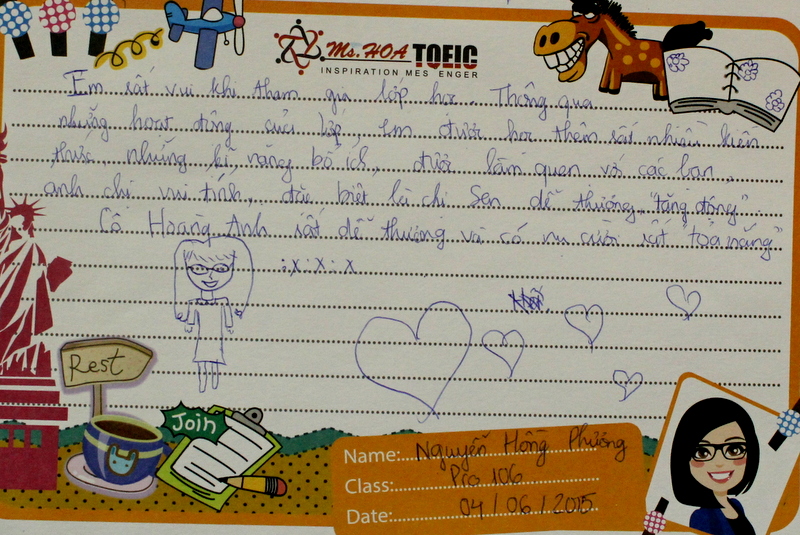 Ms.HOA TOEIC
INSPIRATION MES ENGER
Em rất vui khi tham gia lớp học. Thông qua
những hoạt động của lớp, em được học thêm rất nhiều kiến
thức, những kĩ năng bổ ích, được làm quen với các bạn,
anh chị vui tính, đặc biệt là chị Sen dễ thương "tăng động".
Cô Hoàng Anh rất dễ thương và có nụ cười rất "tỏa nắng"
:x :x :x
Rest
Join
Name: Nguyễn Hồng Phương
Class: Pro 106
Date: 04/06/2015